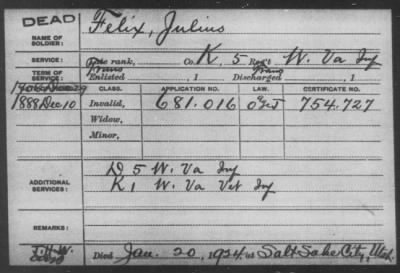 DEAD
NAME OF SOLDIER:
Felix, Julius
SERVICE:
rank, Co. K, 5 Reg't W. Va Inf
TERM OF SERVICE:
Enlisted , 1 Discharged , 1
CLASS. APPLICATION NO. LAW. CERTIFICATE NO.
1888 Dec 10
Invalid, 681.016 754.727
Widow,
Minor,
ADDITIONAL SERVICES:
D 5 W. Va Inf
K 1 W. Va Vet Inf
REMARKS:
Died Jan. 20, 1924, at Salt Lake City, Utah.